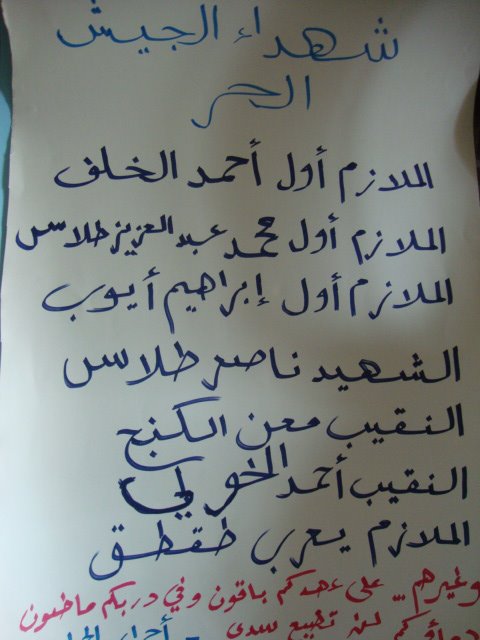 شهداء الجيش
الحر
الملازم أول أحمد الخلف
الملازم أول محمد عبد العزيز طلاس
الملازم أول إبراهيم أيوب
الشهيد ناصر طلاس
النقيب معن الكنج
النقيب أحمد الخولي
الملازم يعرب طقطق
وغيرهم .. على عهدكم باقون وفي دربكم ماضون
دمائكم لن تضيع سدى - أحرار